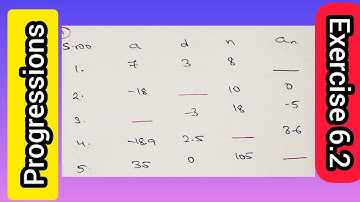 Progressions
S.no a d n an
1. 7 3 8 ___
2. -18 ___ 10 0
3. ___ -3 18 -5
4. -18.9 2.5 ___ 3.6
5. 35 0 105 ___
Exercise 6.2